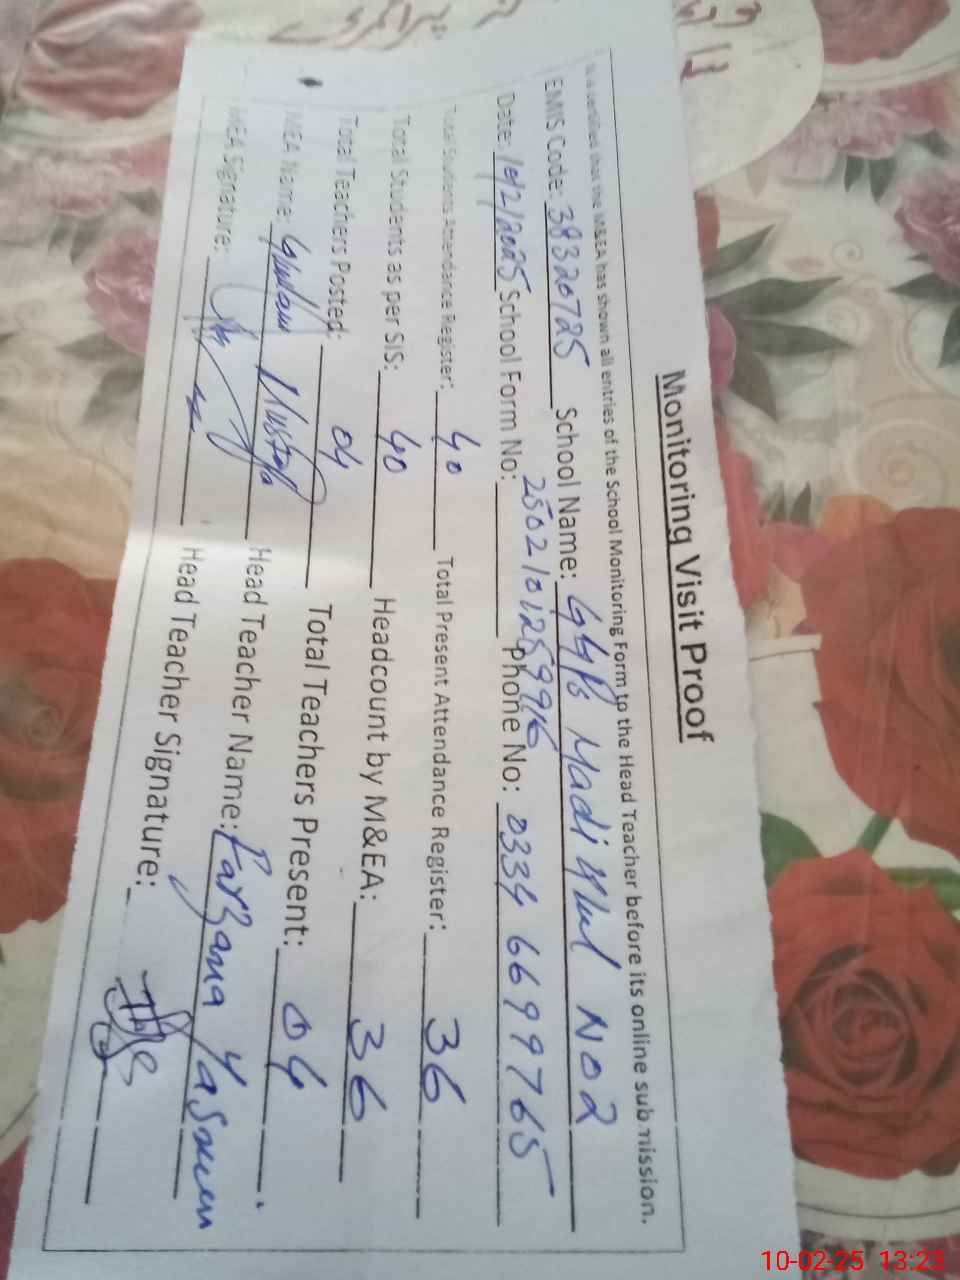 Monitoring Visit Proof
It is certified that the M&EA has shown all entries of the School Monitoring Form to the Head Teacher before its online submission.
EMIS Code: 38320725 School Name: GGPS Madi Khel No 2
Date: 10/2/2025 School Form No: 2502101259916 Phone No: 0334 6699765
Total Students Attendance Register: 40 Total Present Attendance Register: 36
Total Students as per SIS: 40 Headcount by M&EA: 36
Total Teachers Posted: 04 Total Teachers Present: 04
MEA Name: Ghulam Mustafa Head Teacher Name: Farzana Yasmeen
MEA Signature: Head Teacher Signature:
10-02-25 13:23